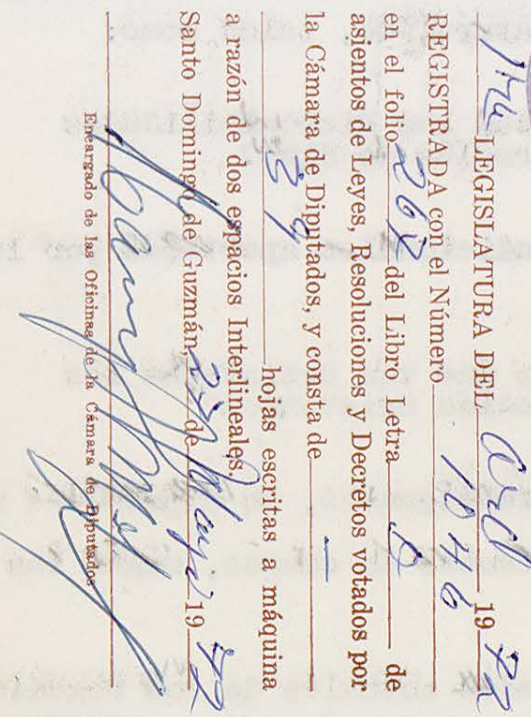 1ra LEGISLATURA DEL Ord. 1972
REGISTRADA con el Número 1846
en el folio 268 del Libro Letra de
asientos de Leyes, Resoluciones y Decretos votados por
la Cámara de Diputados, y consta de
34 hojas escritas a máquina
a razón de dos espacios Interlineales.
Santo Domingo de Guzmán, 23 de Mayo 1972
Encargado de las Oficinas de la Cámara de Diputados